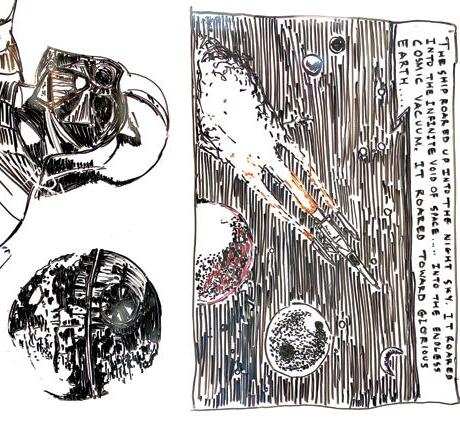 THE SHIP ROARED UP INTO THE NIGHT SKY. IT ROARED
INTO THE INFINITE VOID OF SPACE.... INTO THE ENDLESS
COSMIC VACUUM. IT ROARED TOWARD GLORIOUS
EARTH...